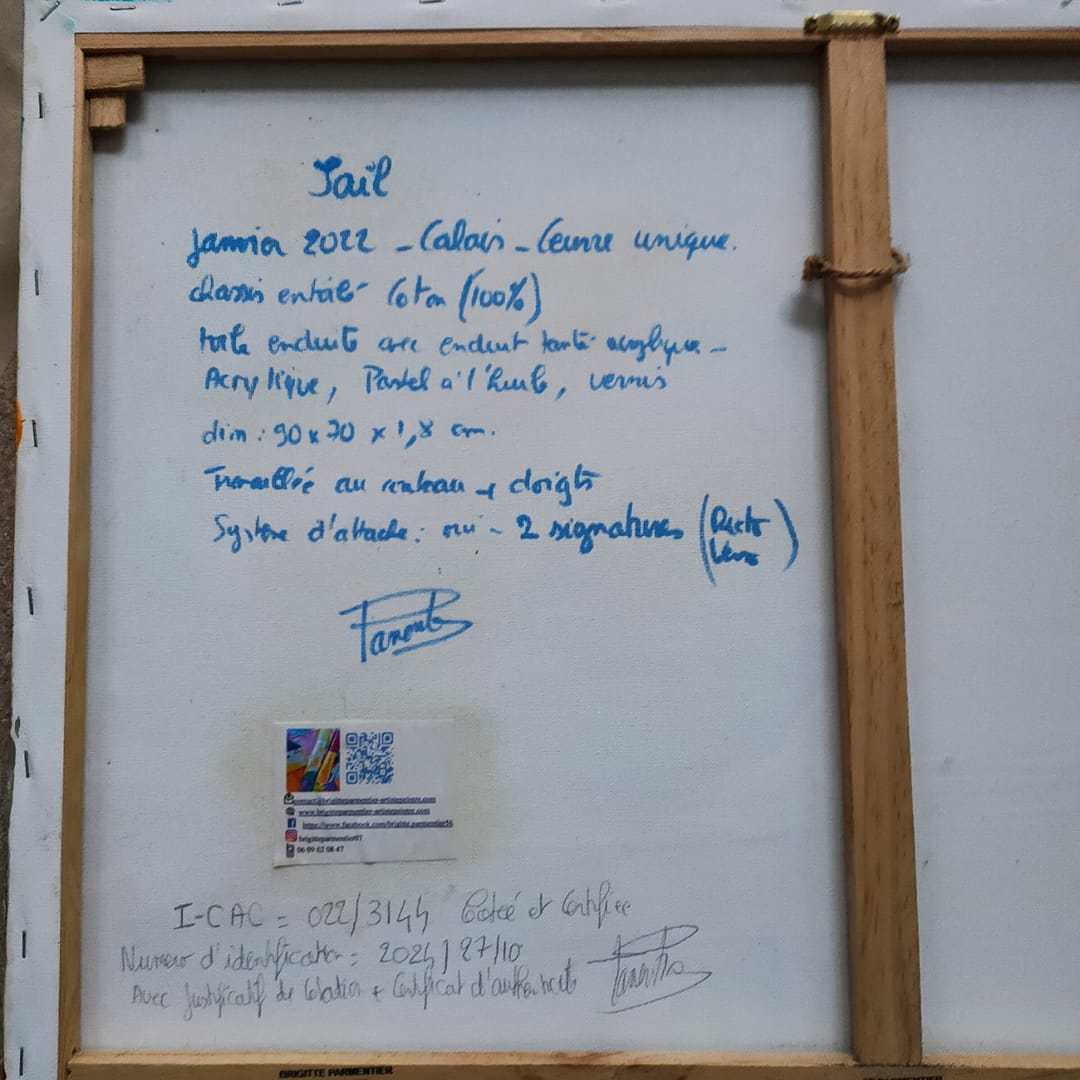 Jail
Janvier 2022 - Calais - Œuvre unique.
chassis entoilé Coton (100%)
toile enduite avec enduit teinté acrylique -
Acrylique, Pastel à l'huile, vernis
dim : 90 x 70 x 1,8 cm.
Travaillée au couteau + doigts
Système d'attache : oui - 2 signatures (Recto
Verso)
contact@brigitteparmentier-artistepeintre.com
www.brigitteparmentier-artistepeintre.com
https://www.facebook.com/brigitte.parmentier56
brigitteparmentier97
06 09 62 08 47
I-CAC = 022/3144 Cotée et Certifiée
Numero d'identification = 2024/27/10
Avec Justificatif de Cotation + Certificat d'authenticité
BRIGITTE PARMENTIER